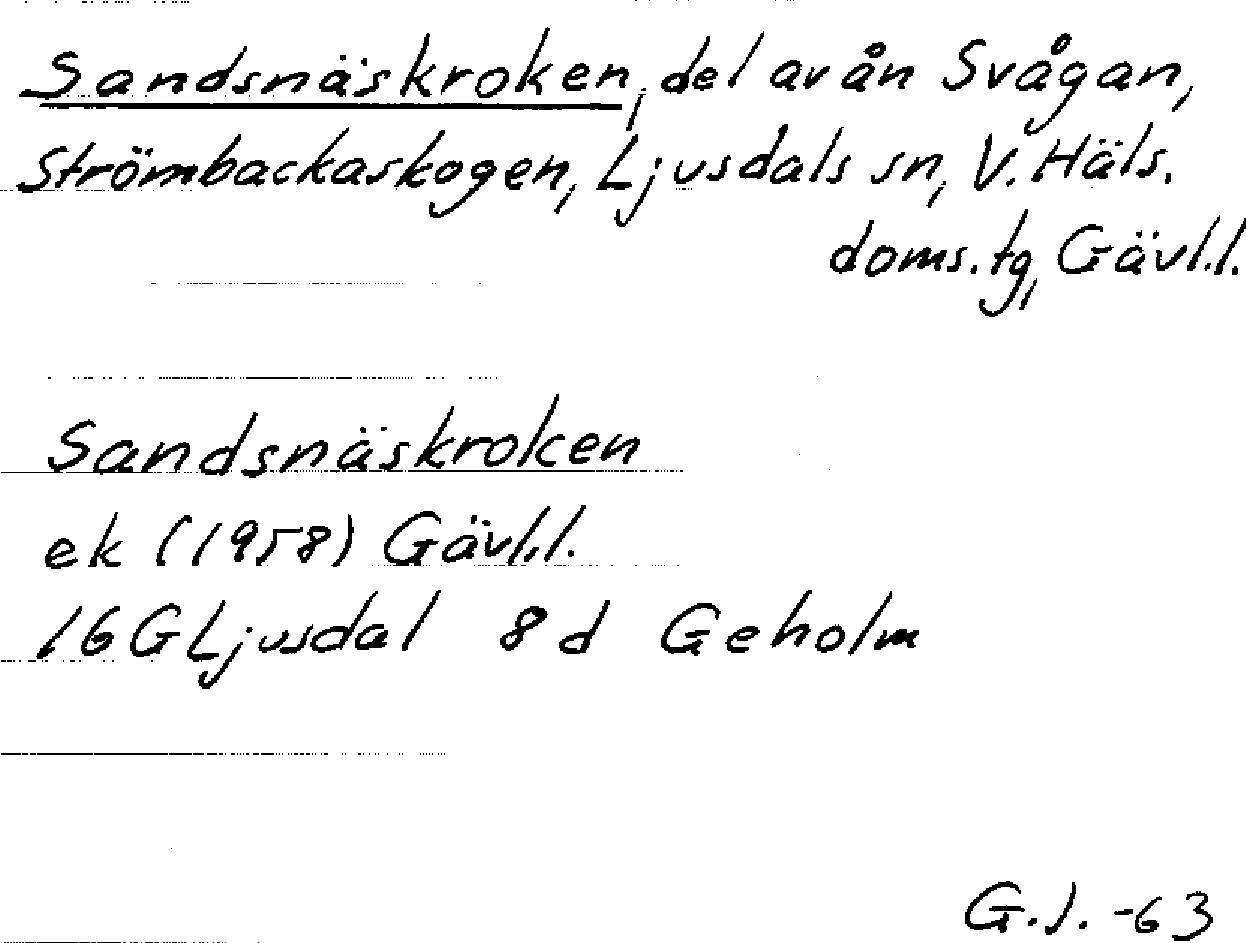 Sandsnäskroken, del av ån Svågan,
Strömbackaskogen, Ljusdals sn, V. Häls.
doms. tg, Gävl.l.
Sandsnäskroken
ek (1958) Gävl.l.
16G Ljusdal 8d Geholm
G.J. -63